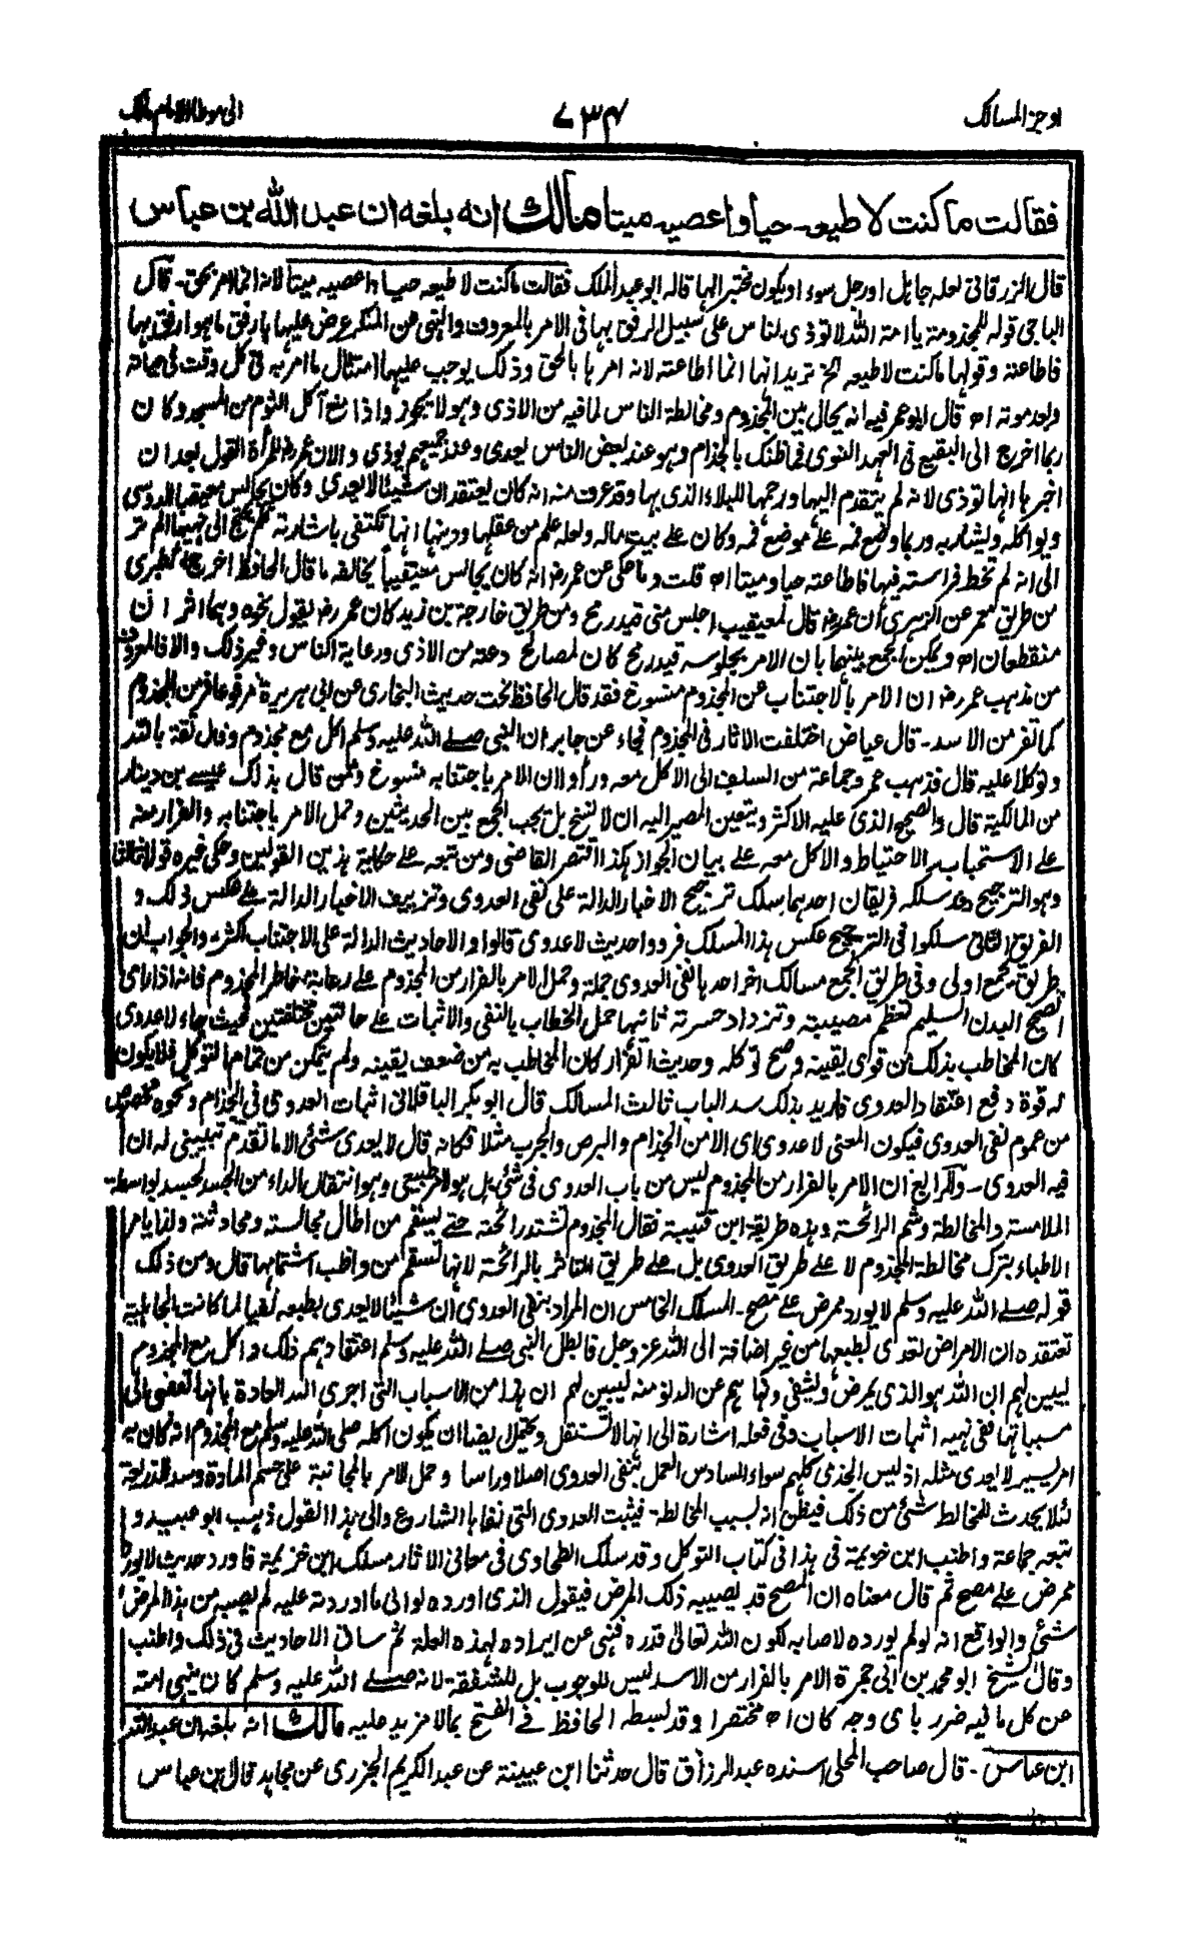 اوجز المسالك
٧٣٤
الى موطا الامام مالك
فقالت ما كنت لاطيعه حيا واعصيه ميتا مالك انه بلغه ان عبد الله بن عباس
قال الزرقانى لعله جاهل او رجل سوء او يكون مختبرا لها قاله ابو عبد الملك فقالت ما كنت لاطيعه حيا واعصيه ميتا لانه انما امر بحق - قال
الباجى قوله للمجذومة يا امة الله لا توذى الناس على سبيل الرفق بها فى الامر بالمعروف والنهى عن المنكر عرض عليها بارفق ما هو ارفق بها
فاطاعته وقولها ما كنت لاطيعه الخ تريد انها انما اطاعته لانه امرها بالحق وذلك يوجب عليها امتثال ما امر به فى كل وقت فى حياته
وبعد موته اه قال ابو عمر فيه انه يحال بين المجذوم ومخالطة الناس لما فيه من الاذى وهو لا يجوز واذا منع آكل الثوم من المسجد وكان
ربما اخرج الى البقيع فى العهد النبوى فما ظنك بالجذام وهو عند بعض الناس يعدى وعند جميعهم يوذى والان عمر رض للمرأة القول بعد ان
اخبرها انها توذى لانه لم يتقدم اليها ورحمها للبلاء الذى بها وقد عرف منه انه كان يعتقد ان شيئا لا يعدى وكان يجالس معيقيبا الدوسى
ويواكله ويشاربه وربما وضع فمه على موضع فمه وكان على بيت ماله ولعله علم من عقلها ودينها انها تكتفى باشارته فلم يحتج الى نهيها الم تر
الى انه لم تخط فراسته فيها فاطاعته حيا وميتا اه قلت وما حكى عن عمر رض انه كان يجالس معيقيبا يخالفه ما قال الحافظ اخرج الطبرى
من طريق معمر عن الزهرى ان عمر رض قال لمعيقيب اجلس منى قيد رمح ومن طريق خارجة بن زيد كان عمر رض يقول نحوه وهما اثران
منقطعان اه ويمكن الجمع بينهما بان الامر بجلوسه قيد رمح كان لمصالح دعته من الاذى ورعاية الناس وغير ذلك والا فالمعروف
من مذهب عمر رض ان الامر بالاجتناب عن المجذوم منسوخ فقد قال الحافظ تحت حديث البخارى عن ابى هريرة مرفوعا فر من المجذوم
كما تفر من الاسد - قال عياض اختلفت الاثار فى المجذوم فجاء عن جابر ان النبى صلے الله عليه وسلم اكل مع مجذوم وقال ثقة بالله
وتوكلا عليه قال فذهب عمر وجماعة من السلف الى الاكل معه وراوا ان الامر باجتنابه منسوخ وممن قال بذلك عيسے بن دينار
من المالكية قال والصحيح الذى عليه الاكثر ويتعين المصير اليه ان لا نسخ بل يجب الجمع بين الحديثين وحمل الامر باجتنابه والفرار منه
على الاستحباب والاحتياط والاكل معه على بيان الجواز هكذا اقتصر القاضى ومن تبعه على حكاية هذين القولين وحكى غيره قولا ثالثا
وهو الترجيح وقد سلكه فريقان احدهما سلك ترجيح الاخبار الدالة على نفى العدوى وتزييف الاخبار الدالة على عكس ذلك و
الفريق الثانى سلكوا فى الترجيح عكس هذا المسلك فردوا حديث لا عدوى قالوا والاحاديث الدالة على الاجتناب اكثر والجواب ان
طريق الجمع اولى وفى طريق الجمع مسالك اخر احدها نفى العدوى جملة وحمل الامر بالفرار من المجذوم على رعاية خاطر المجذوم فانه اذا راى
الصحيح البدن السليم تعظم مصيبته وتزداد حسرته ثانيها حمل الخطاب بالنفى والاثبات على حالتين مختلفتين فحيث جاء لا عدوى
كان المخاطب بذلك من قوى يقينه وصح توكله وحديث الفرار كان المخاطب به من ضعف يقينه ولم يتمكن من تمام التوكل فلا يكون
له قوة دفع اعتقاد العدوى فاريد بذلك سد الباب ثالث المسالك قال ابو بكر الباقلانى اثبات العدوى فى الجذام ونحوه مخصوص
من عموم نفى العدوى فيكون المعنى لا عدوى اى الا من الجذام والبرص والجرب مثلا فكانه قال لا يعدى شئ الا ما تقدم تبيينى له ان
فيه العدوى - والرابع ان الامر بالفرار من المجذوم ليس من باب العدوى فى شئ بل هو لامر طبيعى وهو انتقال الداء من الجسد لجسد بواسطة
الملامسة والمخالطة وشم الرائحة وهذه طريقة ابن قتيبة فقال المجذوم تشتد رائحته حتى يسقم من اطال مجالسته ومحادثته ولذا يامر
الاطباء بترك مخالطة المجذوم لا على طريق العدوى بل على طريق التاثر بالرائحة لانها تسقم من واظب اشتمامها قال ومن ذلك
قوله صلے الله عليه وسلم لا يورد ممرض على مصح - المسلك الخامس ان المراد بنفى العدوى ان شيئا لا يعدى بطبعه نفيا لما كانت الجاهلية
تعتقده ان الامراض تعدى بطبعها من غير اضافة الى الله عز وجل فابطل النبى صلے الله عليه وسلم اعتقادهم ذلك واكل مع المجذوم
ليبين لهم ان الله هو الذى يمرض ويشفى ونهاهم عن الدنو منه ليبين لهم ان هذا من الاسباب التى اجرى الله العادة بانها تفضى الى
مسبباتها ففى نهيه اثبات الاسباب وفى فعله اشارة الى انها لا تستقل ويحتمل ايضا ان يكون اكله صلى الله عليه وسلم مع المجذوم انه كان به
امر يسير لا يعدى مثله اذ ليس الجذمى كلهم سواء السادس العمل بنفى العدوى اصلا وراسا وحمل الامر بالمجانبة على حسم المادة وسد الذريعة
لئلا يحدث للمخالط شئ من ذلك فيظن انه بسبب المخالطة - فيثبت العدوى التى نفاها الشارع والى هذا القول ذهب ابو عبيد و
تبعه جماعة واطنب ابن خزيمة فى هذا فى كتاب التوكل وقد سلك الطحاوى فى معانى الاثار مسلك ابن خزيمة فاورد حديث لا يورد
ممرض على مصح ثم قال معناه ان المصح قد يصيبه ذلك المرض فيقول الذى اورده لو انى ما اوردته عليه لم يصبه من هذا المرض
شئ والواقع انه لو لم يورده لاصابه لكون الله تعالى قدره فنهى عن ايراده لهذه العلة ثم ساق الاحاديث فى ذلك واطنب
وقال الشيخ ابو محمد بن ابى جمرة الامر بالفرار من الاسد ليس للوجوب بل للشفقة لانه صلے الله عليه وسلم كان ينهى امته
عن كل ما فيه ضرر باى وجه كان اه مختصرا وقد بسطه الحافظ فى الفتح بما لا مزيد عليه مالك انه بلغه ان عبد الله
ابن عباس - قال صاحب المحلى اسنده عبد الرزاق قال حدثنا ابن عيينة عن عبد الكريم الجزرى عن مجاهد قال ابن عباس